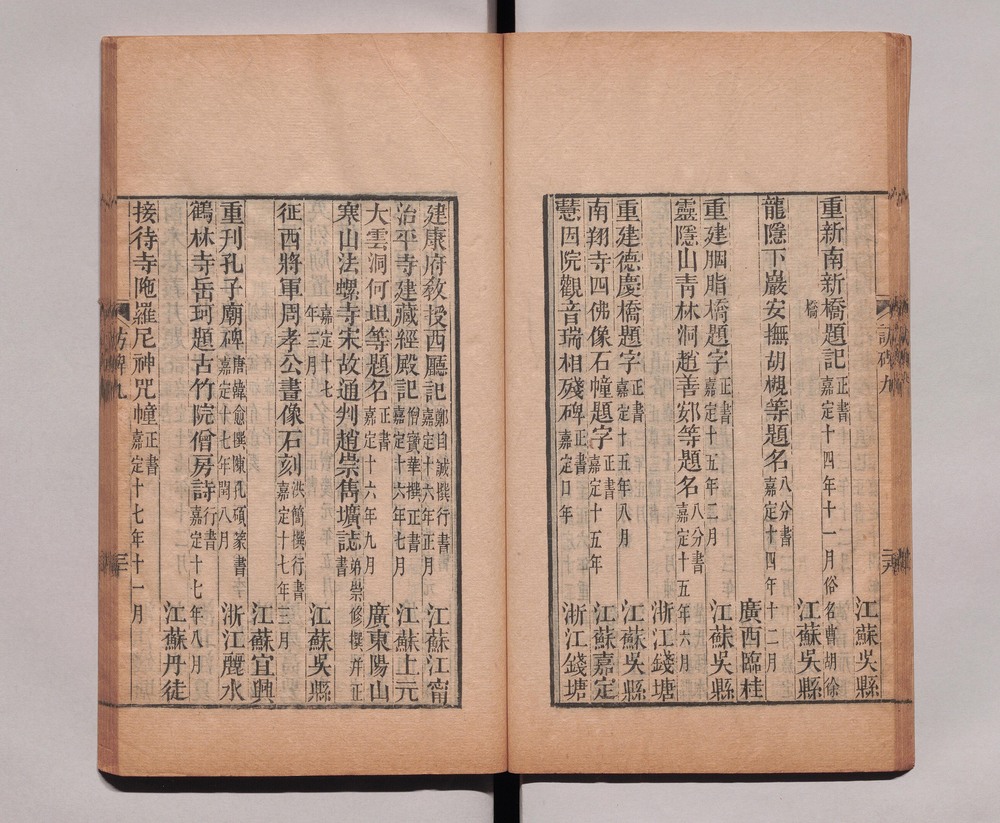 江蘇吳縣
重新南新橋題記正書嘉定十四年十一月俗名曹胡徐
橋
江蘇吳縣
龍隱下巖安撫胡槻等題名八分書嘉定十四年十二月
廣西臨桂
重建胭脂橋題字正書嘉定十五年二月
江蘇吳縣
靈隱山青林洞趙善郊等題名八分書嘉定十五年六月
浙江錢塘
重建德慶橋題字正書嘉定十五年八月
江蘇吳縣
南翔寺四佛像石幢題字正書嘉定十五年
江蘇嘉定
慧因院觀音瑞相殘碑正書嘉定口年
浙江錢塘
建康府教授西廳記鄭自誠撰行書嘉定十六年正月
江蘇江甯
治平寺建藏經殿記僧寶華撰正書嘉定十六年七月
江蘇上元
大雲洞何坦等題名正書嘉定十六年九月
廣東陽山
寒山法螺寺宋故通判趙崇雋壙誌弟崇修撰并正書
嘉定十七年三月
江蘇吳縣
征西將軍周孝公畫像石刻洪簡撰行書嘉定十七年三月
江蘇宜興
重刊孔子廟碑唐韓愈撰陳孔碩篆書嘉定十七年閏八月
浙江麗水
鶴林寺岳珂題古竹院僧房詩行書嘉定十七年八月
江蘇丹徒
接待寺陁羅尼神咒幢正書嘉定十七年十一月
訪碑九